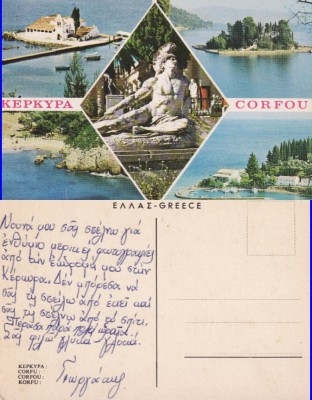 ΚΕΡΚΥΡΑ
CORFOU
ΕΛΛΑΣ-GREECE
Νουνά μου σας στέλνω γιά
ένθύμιο μερικες φωτογραφίες
από την εκδρομή μου στην
Κέρκυρα. Δεν μπόρεσα να
σας τις στείλω από εκεί και
σας τις στέλνω από το σπίτι.
Πέρασα πάρα πολύ ωραία.
Σας φιλώ γλυκά γλυκά
Γιωργάκης
ΚΕΡΚΥΡΑ:
CORFU:
CORFOU:
KORFU: